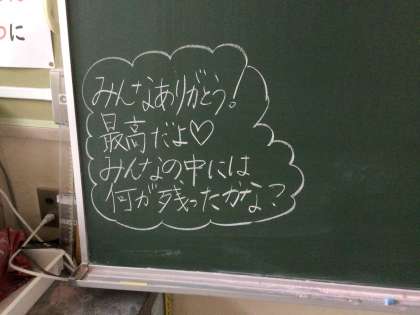 に
みんなありがとう!
最高だよ♡
みんなの中には
何が残ったかな?